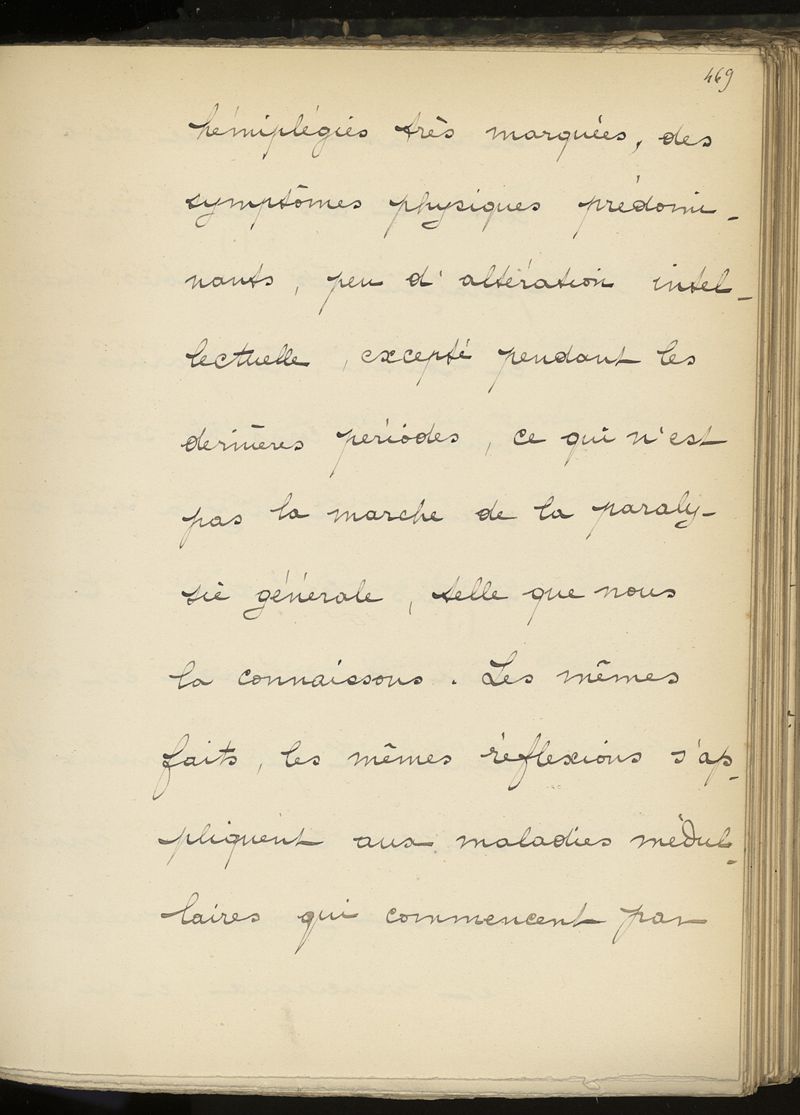 469
hémiplégies très marquées, des
symptômes physiques prédomi-
nants, peu d'altération intel-
lectuelle, excepté pendant les
dernières périodes, ce qui n'est
pas la marche de la paraly-
sie générale, telle que nous
la connaissons. Les mêmes
faits, les mêmes réflexions s'ap-
pliquent aux maladies médul-
laires qui commencent par